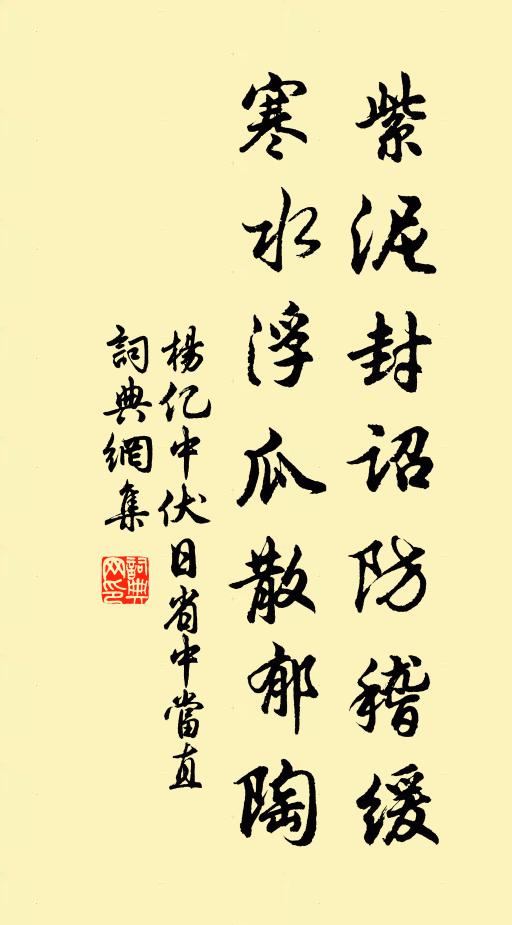 紫泥封诏防稽缓
寒水浮瓜散郁陶
楊亿中伏日省中當直
詞典網集
詞典网印